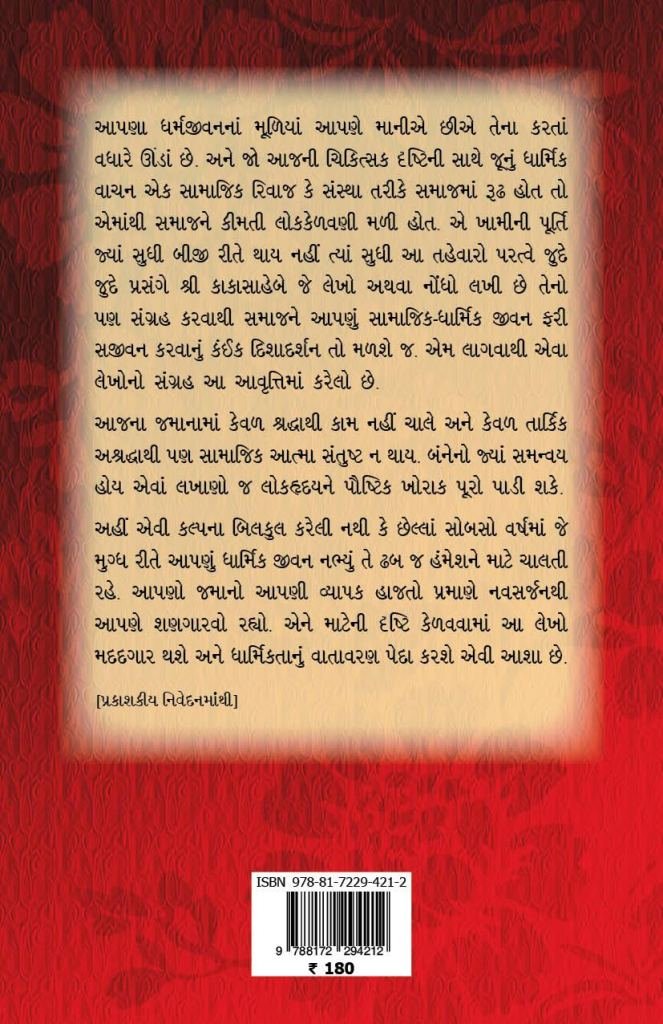 આપણા ધર્મજીવનનાં મૂળિયાં આપણે માનીએ છીએ તેના કરતાં
વધારે ઊંડાં છે. અને જો આજની ચિકિત્સક દૃષ્ટિની સાથે જૂનું ધાર્મિક
વાચન એક સામાજિક રિવાજ કે સંસ્થા તરીકે સમાજમાં રૂઢ હોત તો
એમાંથી સમાજને કીમતી લોકકેળવણી મળી હોત. એ ખામીની પૂર્તિ
જ્યાં સુધી બીજી રીતે થાય નહીં ત્યાં સુધી આ તહેવારો પરત્વે જુદે
જુદે પ્રસંગે શ્રી કાકાસાહેબે જે લેખો અથવા નોંધો લખી છે તેનો
પણ સંગ્રહ કરવાથી સમાજને આપણું સામાજિક-ધાર્મિક જીવન ફરી
સજીવન કરવાનું કંઈક દિશાદર્શન તો મળશે જ. એમ લાગવાથી એવા
લેખોનો સંગ્રહ આ આવૃત્તિમાં કરેલો છે.
આજના જમાનામાં કેવળ શ્રદ્ધાથી કામ નહીં ચાલે અને કેવળ તાર્કિક
અશ્રદ્ધાથી પણ સામાજિક આત્મા સંતુષ્ટ ન થાય. બંનેનો જ્યાં સમન્વય
હોય એવાં લખાણો જ લોકહૃદયને પૌષ્ટિક ખોરાક પૂરો પાડી શકે.
અહીં એવી કલ્પના બિલકુલ કરેલી નથી કે છેલ્લાં સોબસો વર્ષમાં જે
મુગ્ધ રીતે આપણું ધાર્મિક જીવન નભ્યું તે ઢબ જ હંમેશને માટે ચાલતી
રહે. આપણો જમાનો આપણી વ્યાપક હાજતો પ્રમાણે નવસર્જનથી
આપણે શણગારવો રહ્યો. એને માટેની દૃષ્ટિ કેળવવામાં આ લેખો
મદદગાર થશે અને ધાર્મિકતાનું વાતાવરણ પેદા કરશે એવી આશા છે.
[પ્રકાશકીય નિવેદનમાંથી]
ISBN 978-81-7229-421-2
9 788172 294212
₹ 180